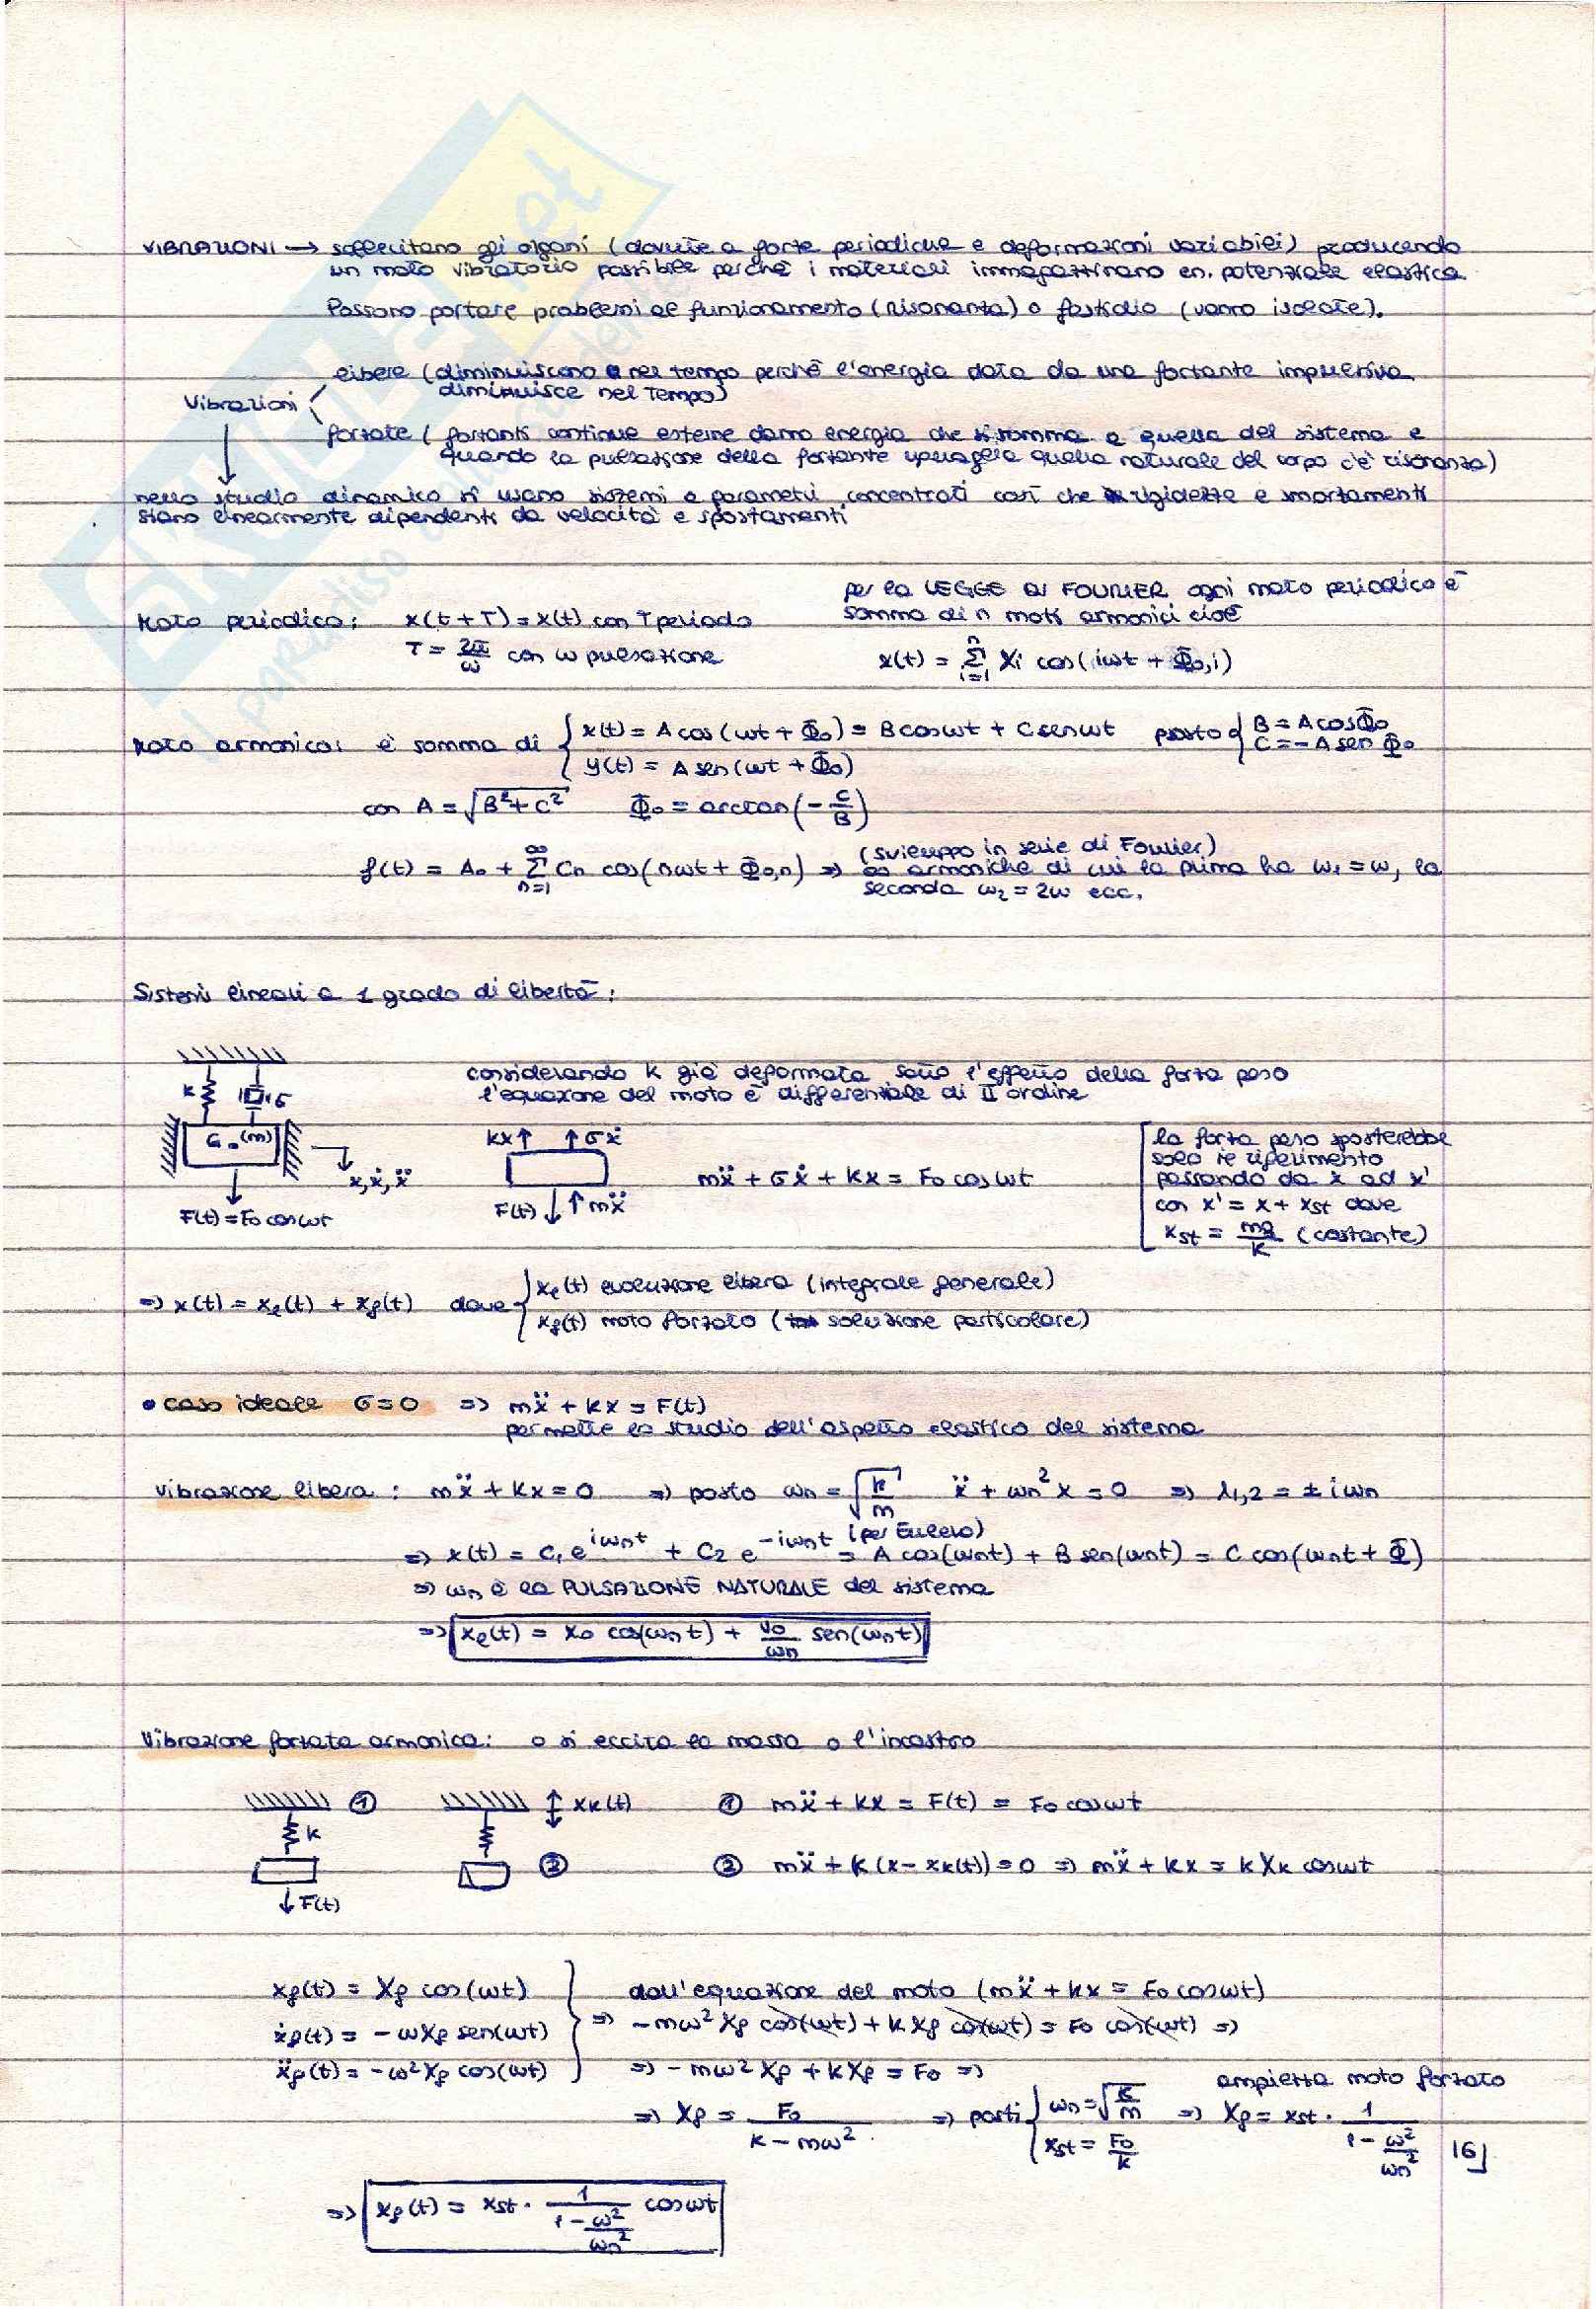 VIBRAZIONI → sollecitano gli organi (dovute a forze periodiche e deformazioni variabili) producendo
un moto vibratorio possibile perchè i materiali immagazzinano en. potenziale elastica.
Possono portare problemi al funzionamento (risonanza) o fastidio (vanno isolate).
libere (diminuiscono nel tempo perchè l'energia data da una forzante impulsiva
diminuisce nel tempo)
Vibrazioni
forzate (forzanti continue esterne danno energia che si somma a quella del sistema e
quando la pulsazione della forzante uguaglia quella naturale del corpo c'è risonanza)
nello studio dinamico si usano sistemi a parametri concentrati così che rigidezze e smorzamenti
siano linearmente dipendenti da velocità e spostamenti
per la LEGGE DI FOURIER ogni moto periodico è
somma di n moti armonici cioè
Moto periodico: x(t+T) = x(t) con T periodo
T = 2π/ω con ω pulsazione
x(t) = Σ_{i=1}^{n} Xi cos(iωt + Φ0,i)
Moto armonico: è somma di { x(t) = A cos(ωt + Φ0) = B cosωt + C senωt posto { B = A cosΦ0
C = -A sen Φ0
y(t) = A sen(ωt + Φ0)
con A = √(B²+C²) Φ0 = arctan(-C/B)
(sviluppo in serie di Fourier)
f(t) = A0 + Σ_{n=1}^{∞} Cn cos(nωt + Φ0,n) => ∞ armoniche di cui la prima ha ω1 = ω, la
seconda ω2 = 2ω ecc.
Sistemi lineari a 1 grado di libertà:
considerando k già deformata sotto l'effetto della forza peso
l'equazione del moto è differenziale di II ordine
k σ
G (m)
x, ẋ, ẍ
F(t) = F0 cosωt
kx↑ ↑σẋ
F(t)↓ ↑mẍ
mẍ + σẋ + kx = F0 cosωt
la forza peso sposterebbe
solo il riferimento
passando da x ad x'
con x' = x + xst dove
xst = mg/k (costante)
=> x(t) = xl(t) + xf(t) dove { xl(t) evoluzione libera (integrale generale)
xf(t) moto forzato (soluzione particolare)
• caso ideale σ=0 => mẍ + kx = F(t)
permette lo studio dell'aspetto elastico del sistema
vibrazione libera: mẍ + kx = 0 => posto ωn = √(k/m) ẍ + ωn²x = 0 => λ1,2 = ± iωn
=> x(t) = C1 e^{iωnt} + C2 e^{-iωnt} = (per Eulero) A cos(ωnt) + B sen(ωnt) = C cos(ωnt + Φ)
=> ωn è la PULSAZIONE NATURALE del sistema
=> xl(t) = x0 cos(ωnt) + v0/ωn sen(ωnt)
Vibrazione forzata armonica: o si eccita la massa o l'incastro
① xk(t) ① mẍ + kx = F(t) = F0 cosωt
k
② ② mẍ + k(x - xk(t)) = 0 => mẍ + kx = k Xk cosωt
↓F(t)
xf(t) = Xf cos(ωt) dall'equazione del moto (mẍ + kx = F0 cosωt)
ẋf(t) = -ωXf sen(ωt) => -mω²Xf cos(ωt) + k Xf cos(ωt) = F0 cos(ωt) =>
ẍf(t) = -ω²Xf cos(ωt) => -mω²Xf + kXf = F0 =>
ampiezza moto forzato
=> Xf = F0/(k - mω²) => posti { ωn = √(k/m) => Xf = xst · 1/(1 - ω²/ωn²)
xst = F0/k
16]
=> xf(t) = xst · 1/(1 - ω²/ωn²) cosωt